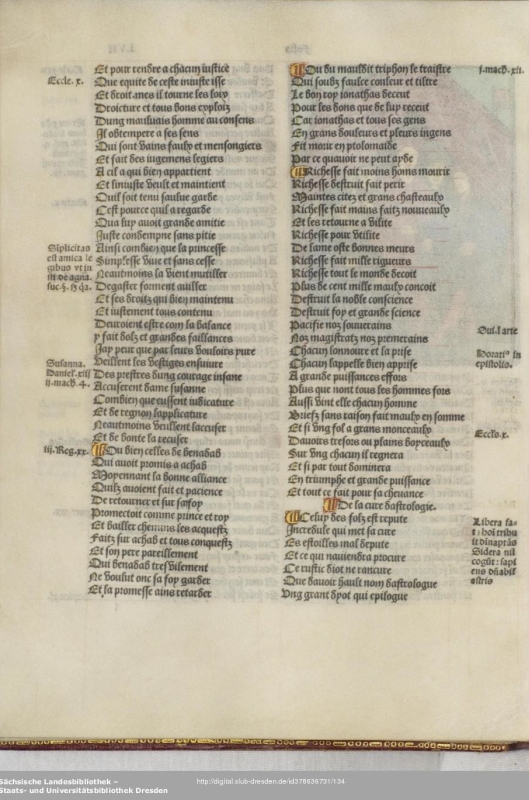 Et pour rendre a chacun iustice
Eccle. x.
Que equite de ceste iniuste isse
Et droit. mes il tourne les loix
Droicture et tous bons exploiz
Dung mauluais homme au consens
Il obtempere a ses sens
Qui sont vains faulx et mensongiers
Et fait des iugemens legiers
A cil a qui bien appartient
Et liniuste veult et maintient
Quil soit tenu saulue garde
Cest pource quil a regarde
Qua luy auoit grande amitie
Juste condempne sans pitie
Ainsi combien que la princesse
Simplesse viue et sans cesse
Neautmoins la vient mutiller
Degaster forment auiller
Et ses droitz qui bien maintenu
Et iustement tous contenu
Deuroient estre com la balance
y fait dolz et grandes faillances
Jay peur que par leurs vouloirs pure
Veillent les vestiges ensuiure
Susanna.
Daniel. xiii
ii. mach. 4.
Des prestres dung courage infane
Accuserent dame susanne
Combien que eussent iudicature
Et de regnon lapplicature
Neautmoins veullent laccuser
Et de bonte la recuser
iii. Reg. xx.
Ou bien celles de benadab
Qui auoit promis a achab
Moyennant la bonne alliance
Quilz auoient fait et pacience
De retourner et sur sa foy
Promectoit comme prince et roy
Et bailler chemins les acquestz
Faitz sur achab et tous conquestz
Et son pere pareillement
Qui benadab tresvilement
Ne voulut onc sa foy garder
Et sa promesse ains retarder
Ou du mauldit triphon le traistre
i. mach. xii.
Qui soubz faulce couleur et tiltre
Le bon roy ionathas deceut
Pour les dons que de luy receut
Car ionathas et tous ses gens
En grans douleurs et pleurs ingens
Fit mourir en ptolomaide
Par ce quauoir ne peut ayde
Richesse fait moins hons mourir
Richesse destruit fait perir
Maintes citez et grans chasteaulx
Richesse fait mains faitz nouueaulx
Et les retourne a vilite
Richesse pour vtilite
De lame oste bonnes meurs
Richesse fait mille rigueurs
Richesse tout le monde decoit
Plus de cent mille maulx concoit
Destruit la noble conscience
Destruit foy et grande science
Pacifie noz souuerains
Noz magistratz noz premerains
Chacun lonnoure et la prise
Horatius in
epistolis.
Chacun lappelle bien apprise
A grande puissances effors
Plus que nont tous les hommes fors
Aussi vint elle chacun homme
Briefz sans raison fait maulx en somme
Et si vng fol a grans monceaulx
Eccls. x.
Dauoirs tresors ou plains boyceaulx
Sur vng chacun il regnera
Et si par tout dominera
En triumphe et grande puissance
Et tout ce fait pour sa cheuance
De la cure dastrologie.
Celuy des folz est repute
Incredule qui met sa cure
Es estoilles mal depute
Et ce qui nauiendra procure
Ce rustic diot ne rancure
Que dauoir hault nom dastrologue
Vng grant dyot qui epilogue
Sächsische Landesbibliothek –
Staats- und Universitätsbibliothek Dresden
http://digital.slub-dresden.de/id378636731/134